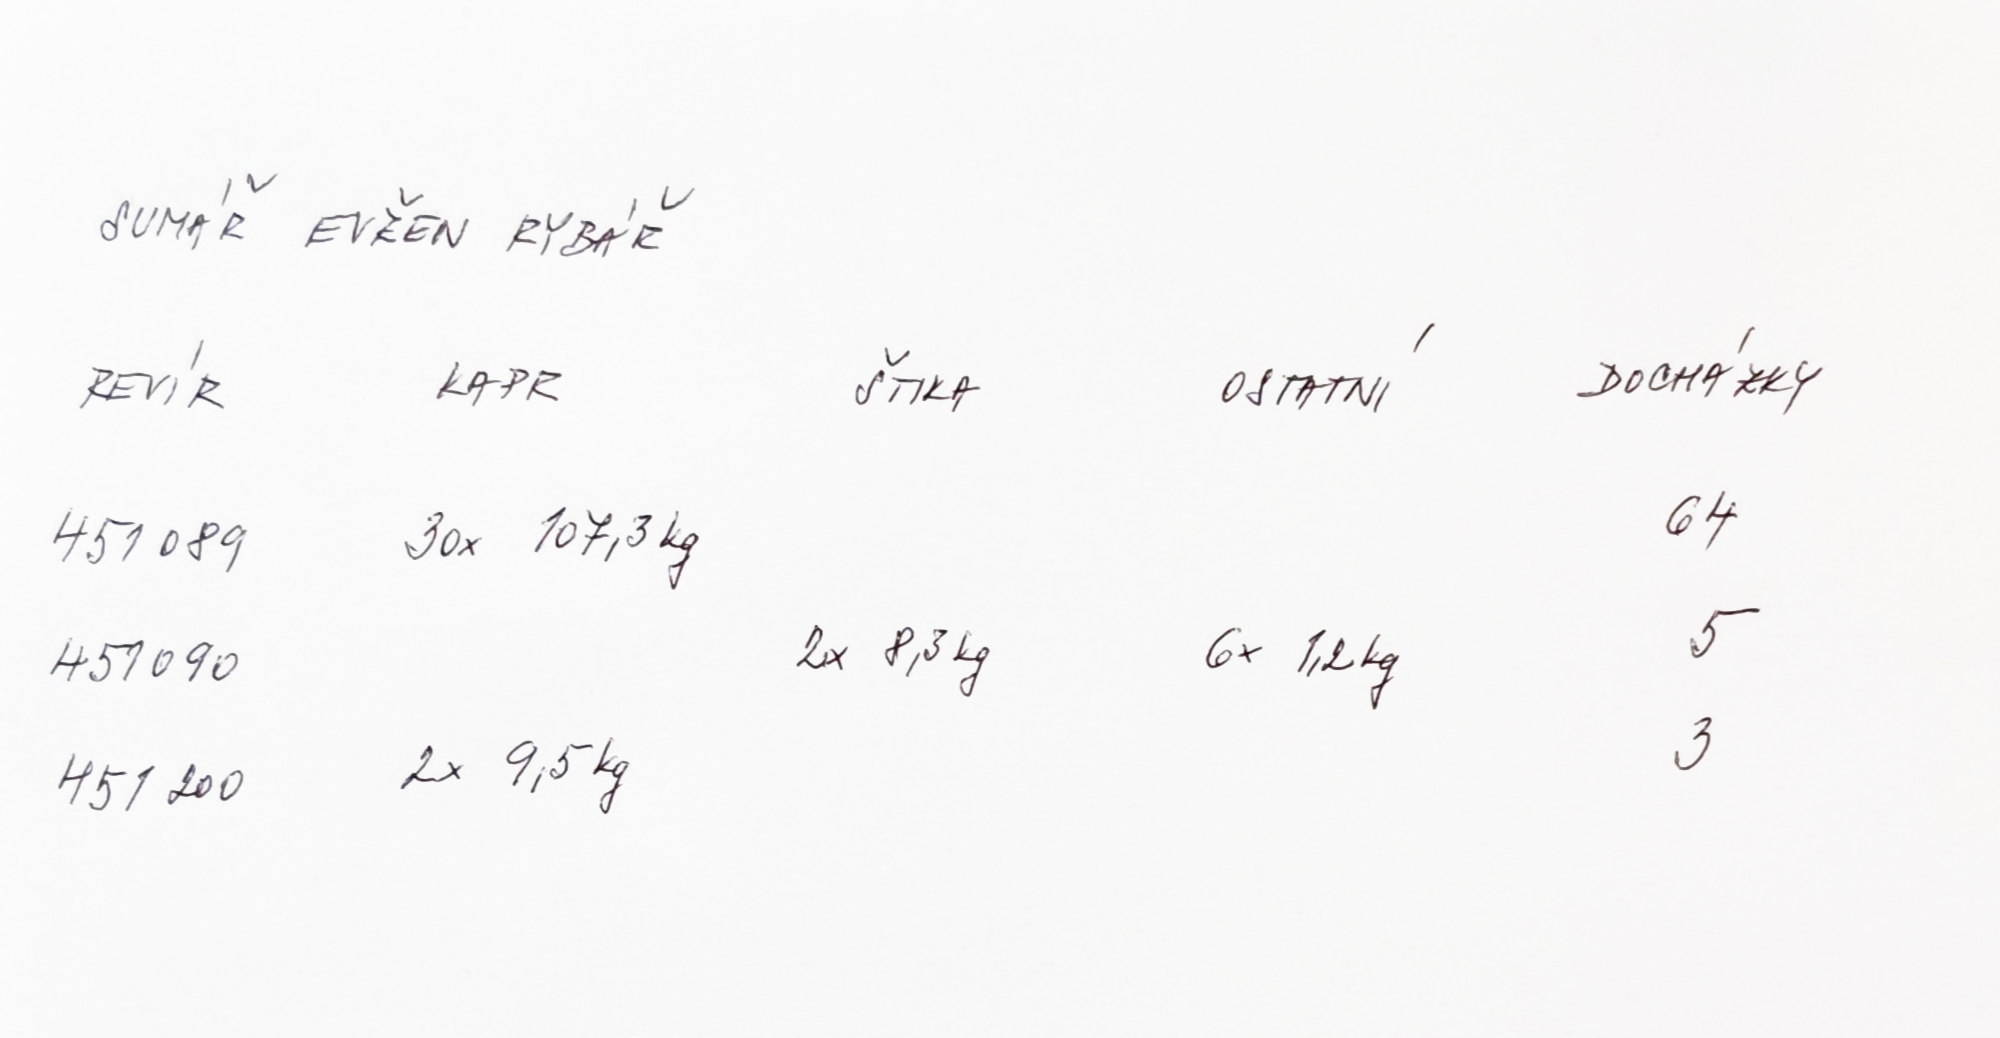 SUMÁŘ EVŽEN RYBÁŘ
REVÍR KAPR ŠTIKA OSTATNÍ DOCHÁZKY
451 089 30x 107,3 kg 64
451 090 2x 8,3 kg 6x 1,2 kg 5
451 200 2x 9,5 kg 3